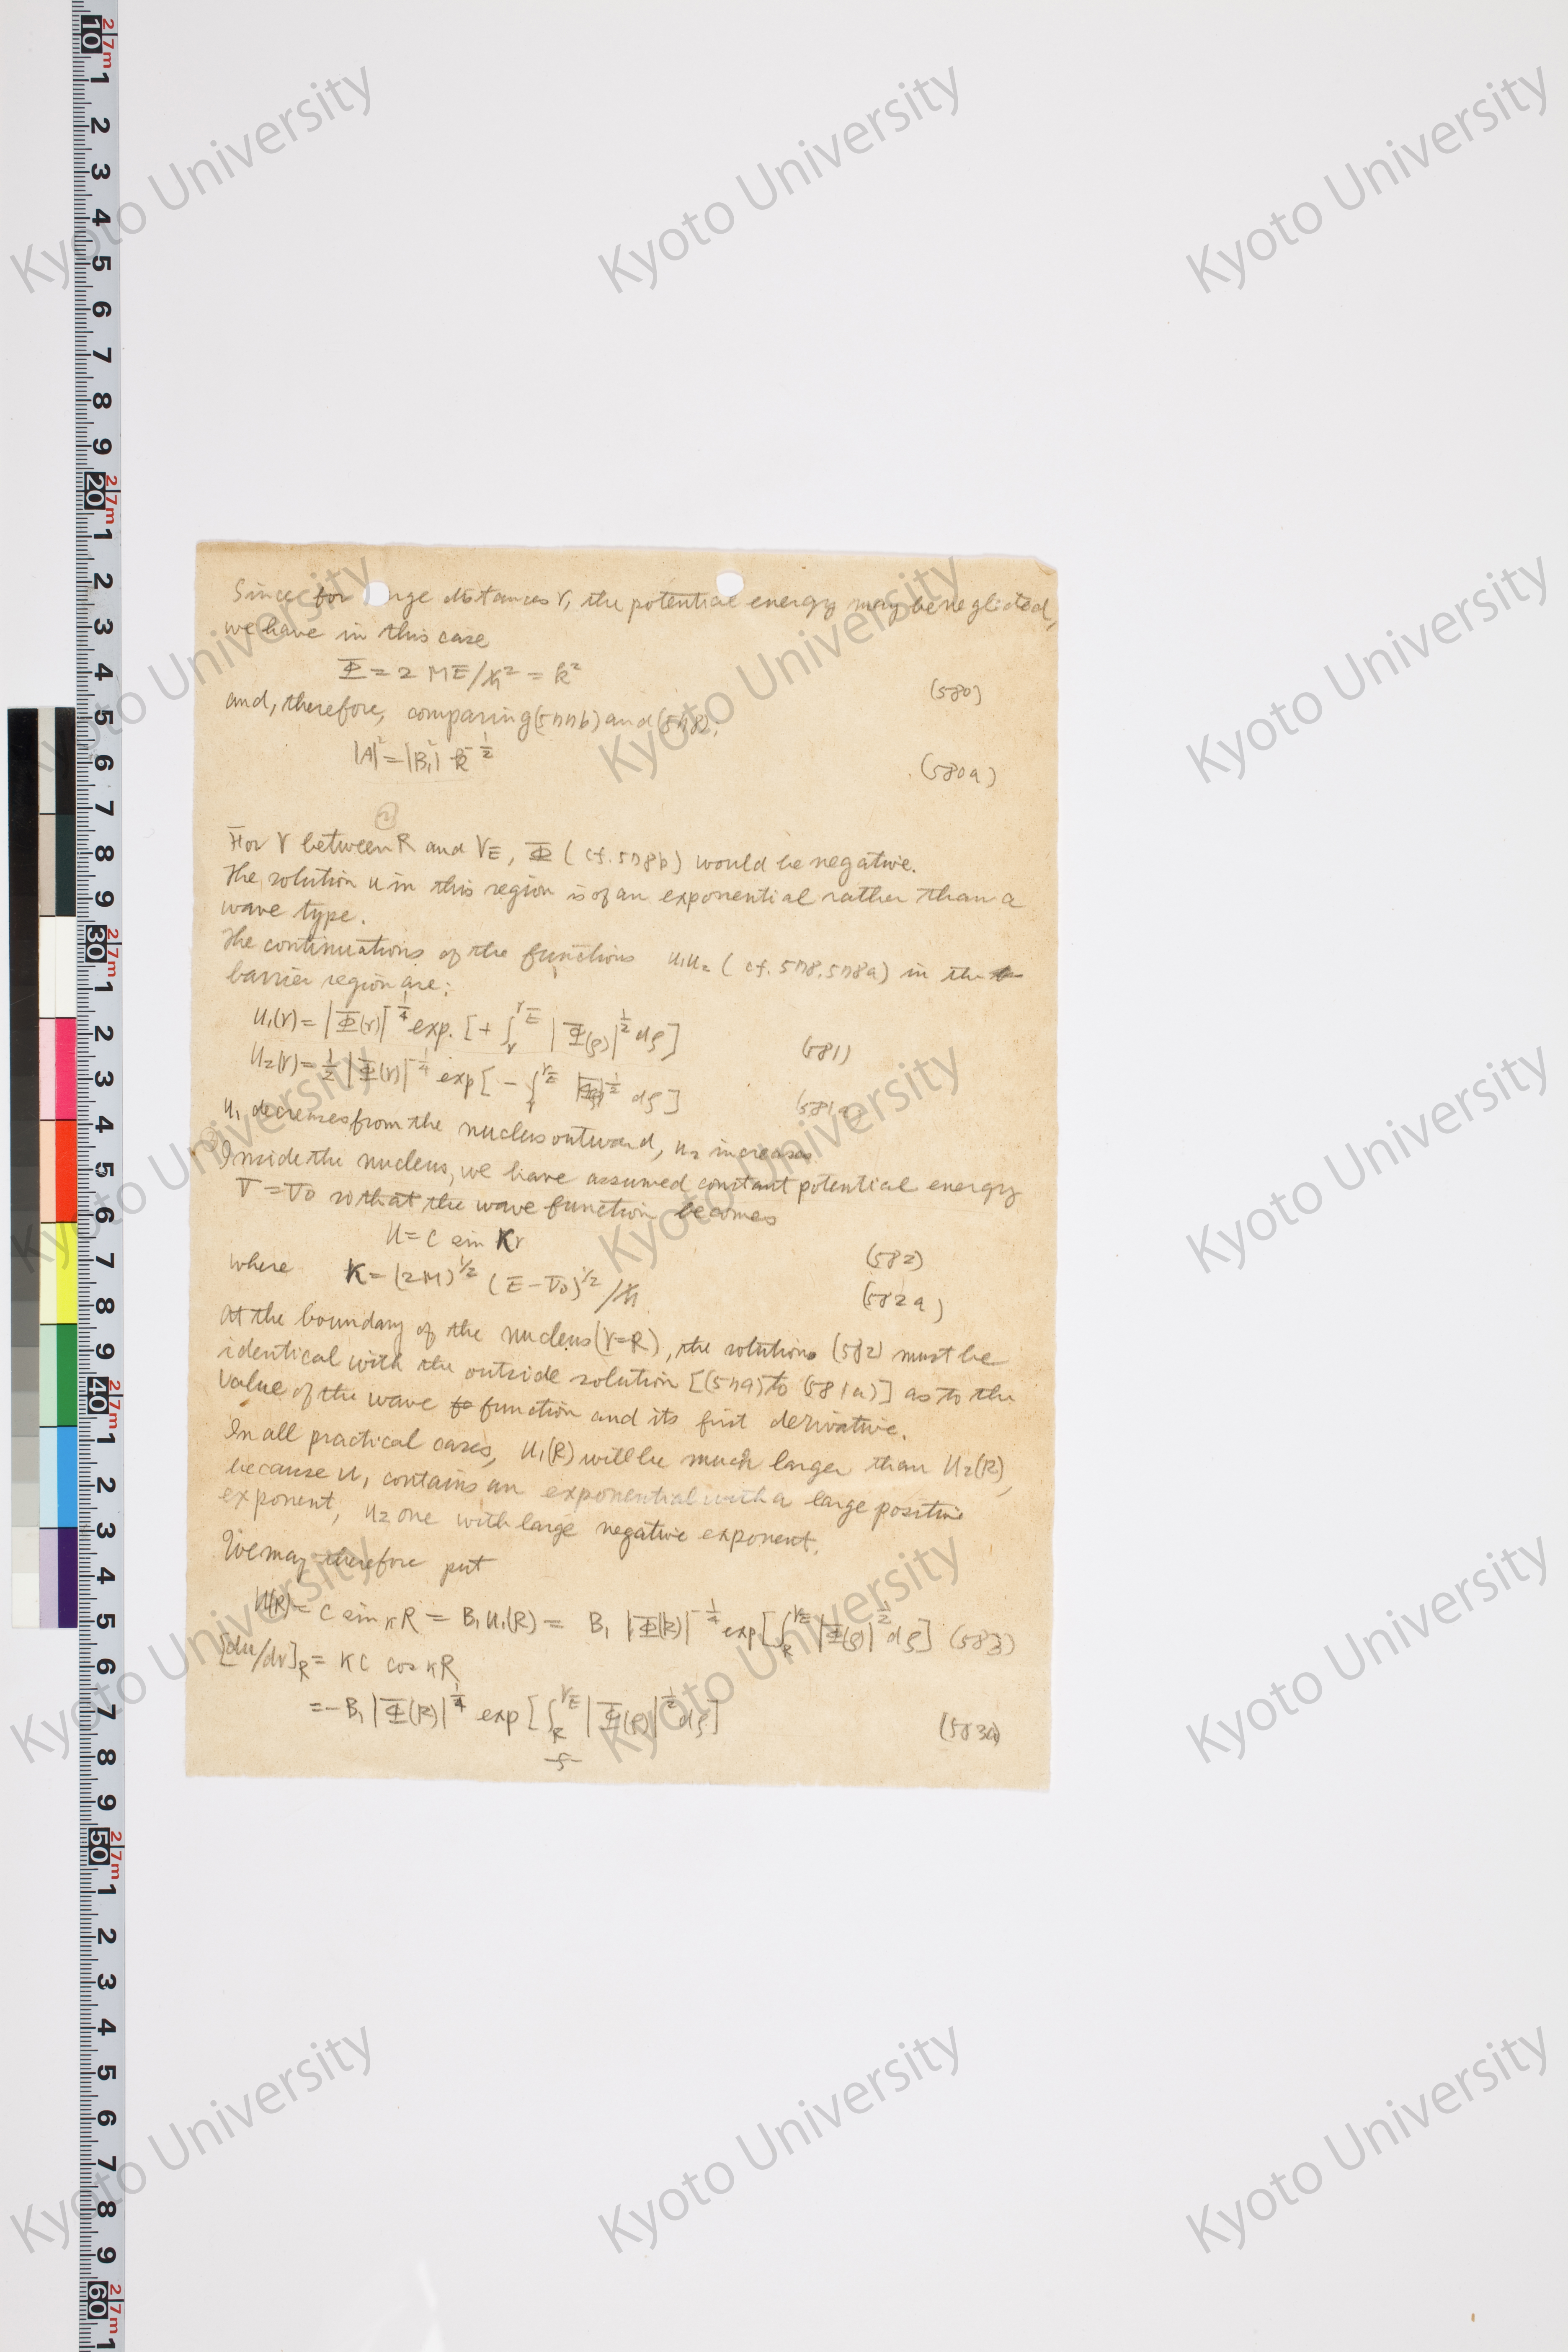 Since for nge distances r, the potential energy may be neglected,
we have in this case
Φ = 2 ME/ħ² = k²
(580)
and, therefore, comparing (577b) and (578);
|A|² = |B₁²| k^{-1/2}
(580a)
②
For r between R and r_E, Φ (cf. 578b) would be negative.
The solution u in this region is of an exponential rather than a
wave type.
The continuations of the functions u₁u₂ (cf. 578, 578a) in the
barrier region are:
u₁(r) = |Φ(r)|^{-1/4} exp. [+ ∫_r^{r_E} |Φ(ρ)|^{1/2} dρ]
(581)
u₂(r) = 1/2 |Φ(r)|^{-1/4} exp [- ∫_r^{r_E} |Φ|^{1/2} dρ]
(581a)
u₁ decreases from the nucleus outward, u₂ increases.
Inside the nucleus, we have assumed constant potential energy
V = V₀ so that the wave function becomes
u = C sin Kr
(582)
where K = (2M)^{1/2} (E - V₀)^{1/2} /ħ
(582a)
At the boundary of the nucleus (r=R), the solutions (582) must be
identical with the outside solution [(579) to (581a)] as to the
value of the wave function and its first derivative.
In all practical cases, u₁(R) will be much larger than u₂(R),
because u₁ contains an exponential with a large positive
exponent, u₂ one with large negative exponent.
We may therefore put
u(R) = C sin κR = B₁u₁(R) = B₁ |Φ(R)|^{-1/4} exp [∫_R^{r_E} |Φ(ρ)|^{1/2} dρ] (583)
[du/dr]_R = KC cos κR
= -B₁ |Φ(R)|^{1/4} exp [∫_R^{r_E} |Φ(ρ)|^{1/2} dρ]
(583a)
-5-
Kyoto University